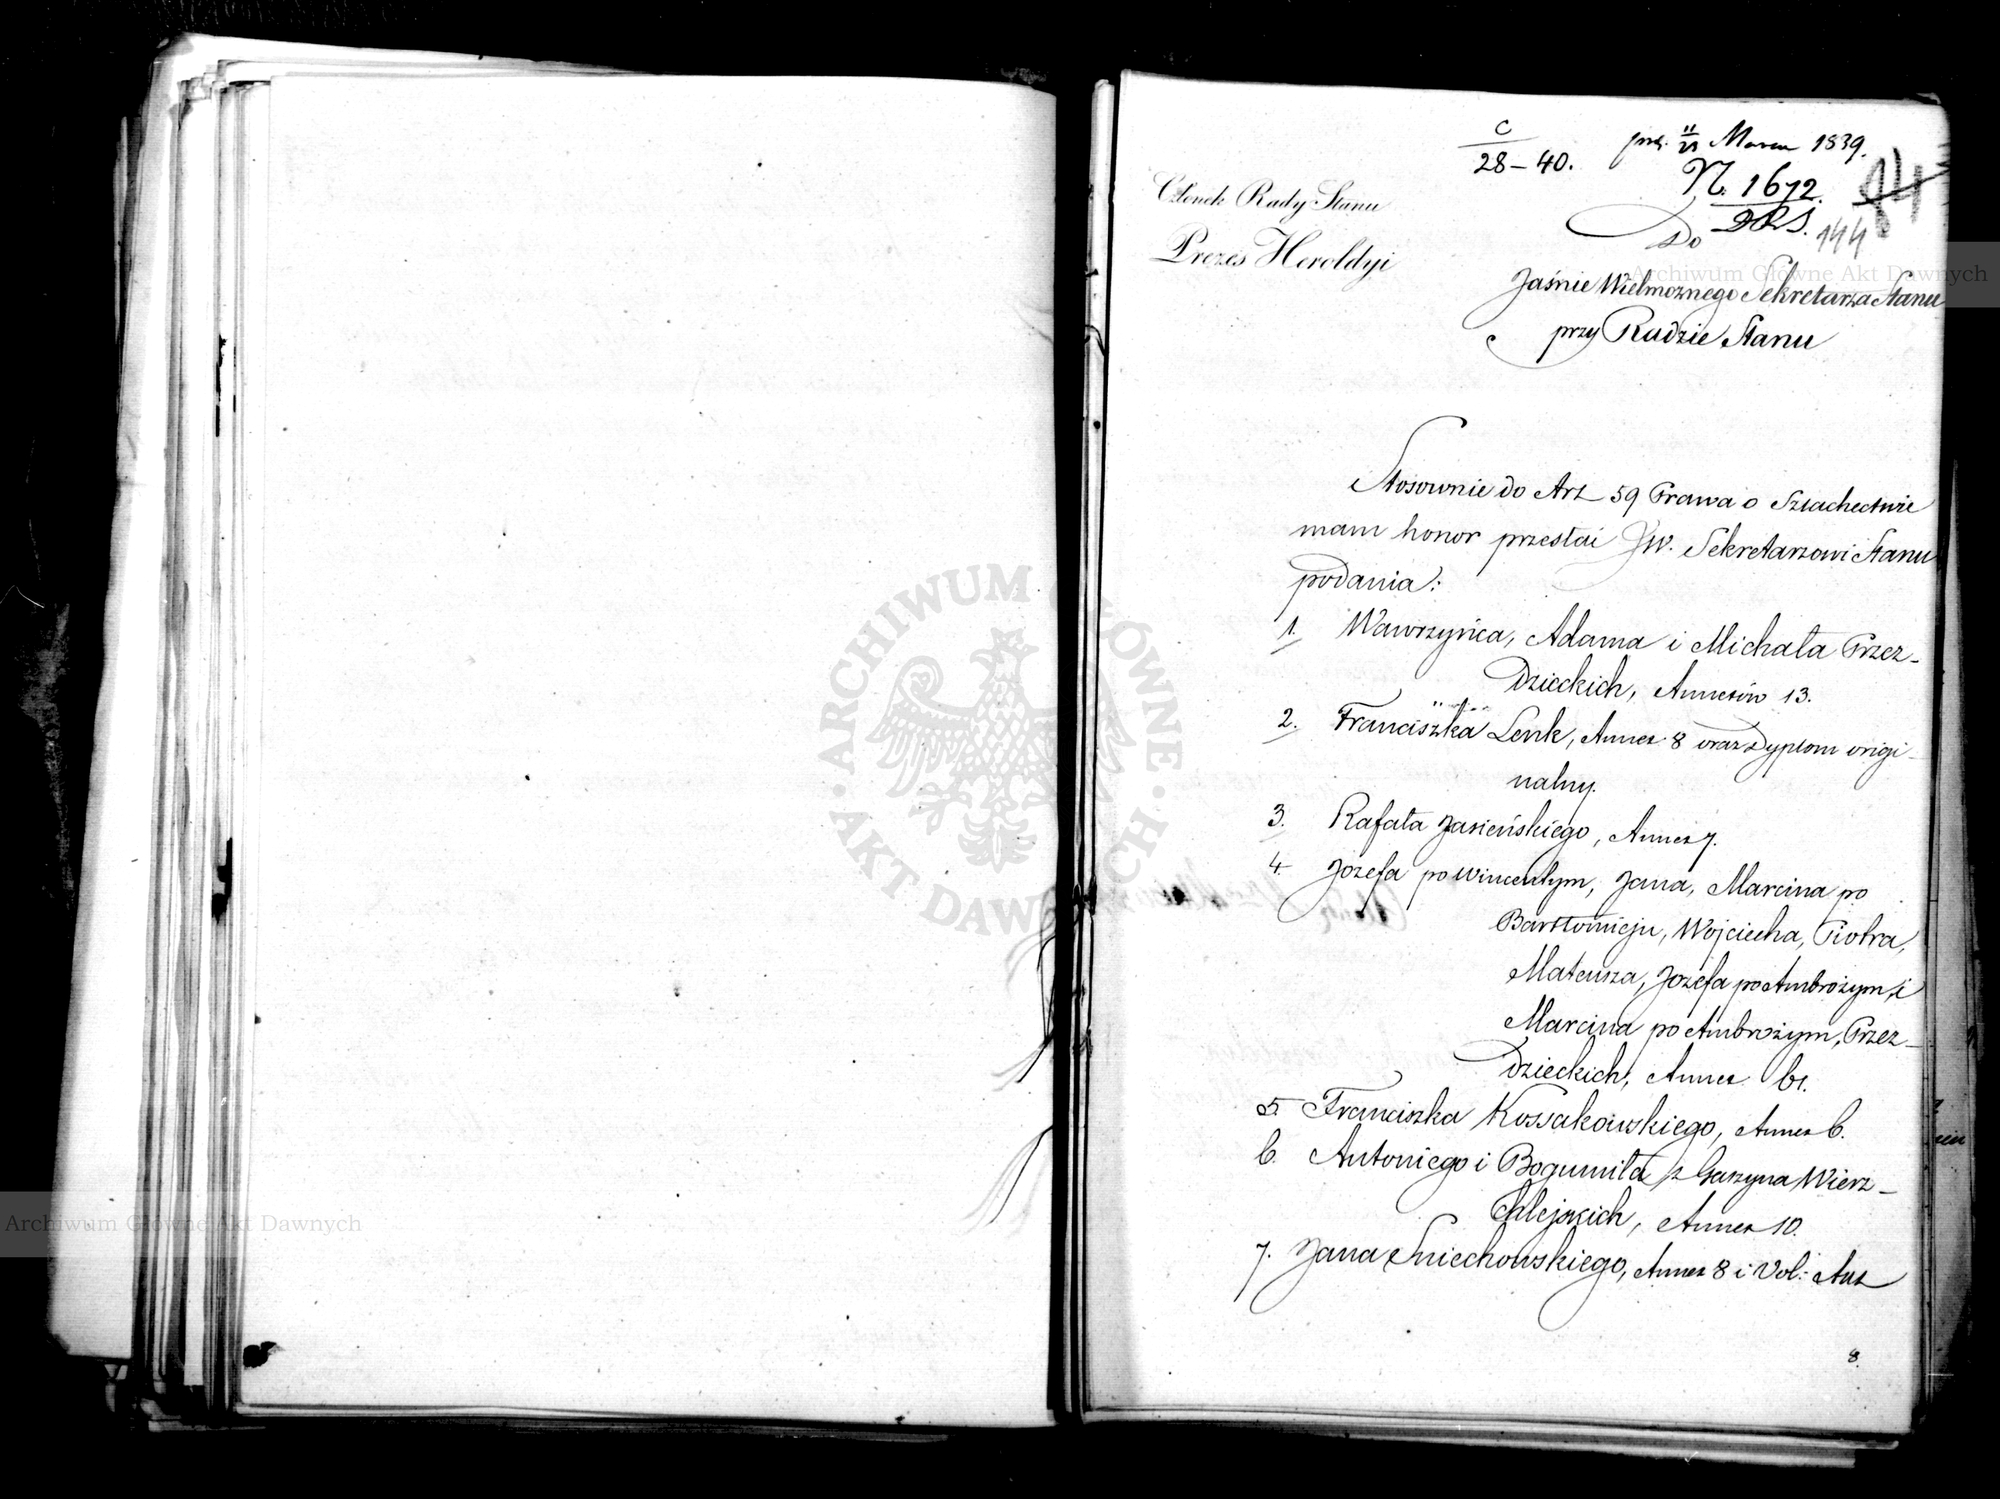 C
28 – 40.
prez. 11/23 Marca 1839.
N. 1672.
DRS.
84
144
Członek Rady Stanu
Prezes Heroldyi
Do
Jaśnie Wielmożnego Sekretarza Stanu
przy Radzie Stanu
Stosownie do Art 59 Prawa o Szlachectwie
mam honor przesłać JW. Sekretarzowi Stanu
podania:
1. Wawrzyńca, Adama i Michała Przez-
dzieckich, Annexów 13.
2. Franciszka Lenk, Annex 8 oraz Dyplom origi-
nalny.
3. Rafała Jasieńskiego, Annex 7.
4. Józefa po Wincentym, Jana, Marcina po
Bartłomieju, Wojciecha, Piotra,
Mateusza, Józefa po Ambrożym, i
Marcina po Ambrożym, Przez-
dzieckich, Annex 61.
5. Franciszka Kossakowskiego, Annex 6.
6. Antoniego i Bogumiła z Garzyna Wierz-
chlejskich, Annex 10.
7. Jana Sniechowskiego, Annex 8 i Vol: Akt
8.
ARCHIWUM GŁÓWNE · AKT DAWNYCH ·
Archiwum Główne Akt Dawnych
Archiwum Główne Akt Dawnych